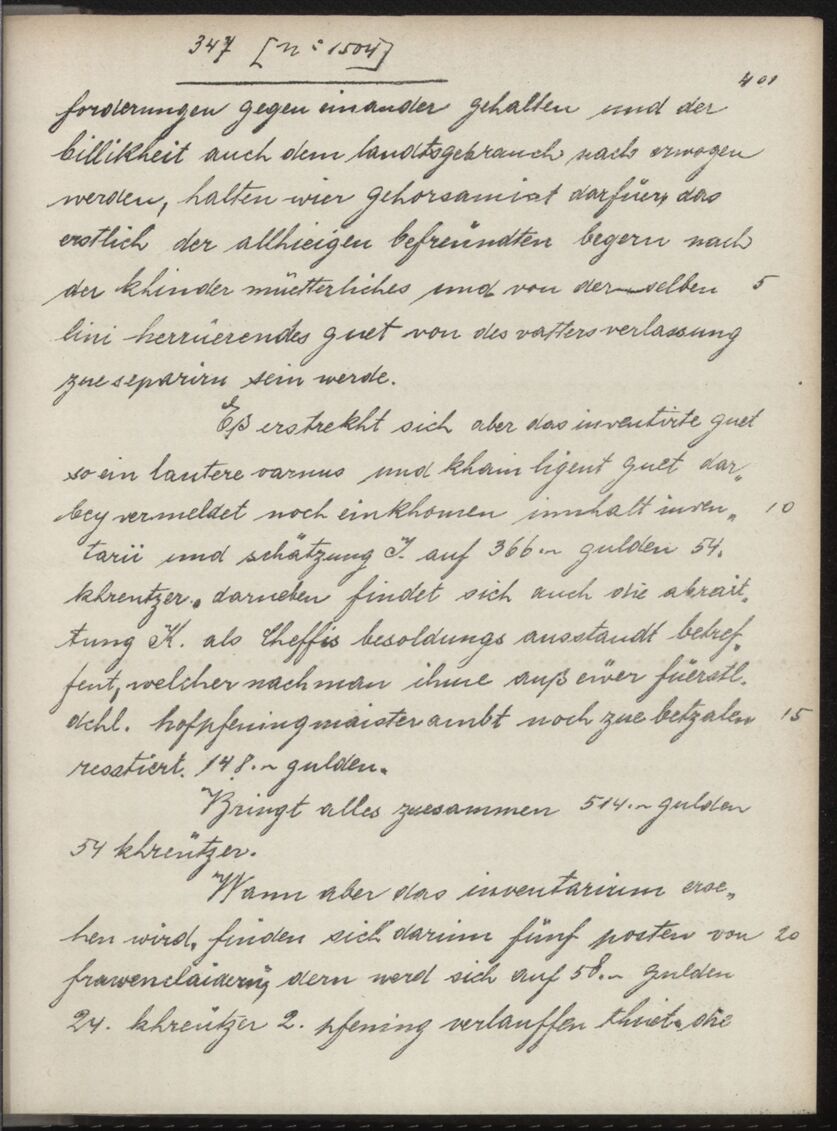 347 [n: 1504]
401
forderungen gegen einander gehalten und der
billikheit auch dem landtsgebrauch nach erwogen
werden, halten wier gehorsamist darfüer, das
erstlich der allhieigen befreündten begern nach
der khinder müetterliches und von der selben 5
lini herrüerendes guet von des vatters verlassung
zue separirn sein werde.
Eß erstrekht sich aber das inventirte guet
so ein lautere varnus und khain ligent guet dar„
bey vermeldet noch einkhomen innhalt inven„ 10
tarii und schätzung J. auf 366.~ gulden 54.
khreutzer. darneben findet sich auch die abrait„
tung K. als Cheffis besoldungs ausstandt betref„
fent, welcher nach man ihme auß eüer füerstl.
dchl. hofpfeningmaisterambt noch zue betzalen 15
resstiert. 148.~ gulden.
Bringt alles zuesammen 514.~ gulden
54 khreützer.
Wann aber das inventarium erse„
hen wird, finden sich darinn fünf posten von 20
frawenclaidern, dern werd sich auf 58.~ gulden
24. khreützer 2. pfening verlauffen thuet. die